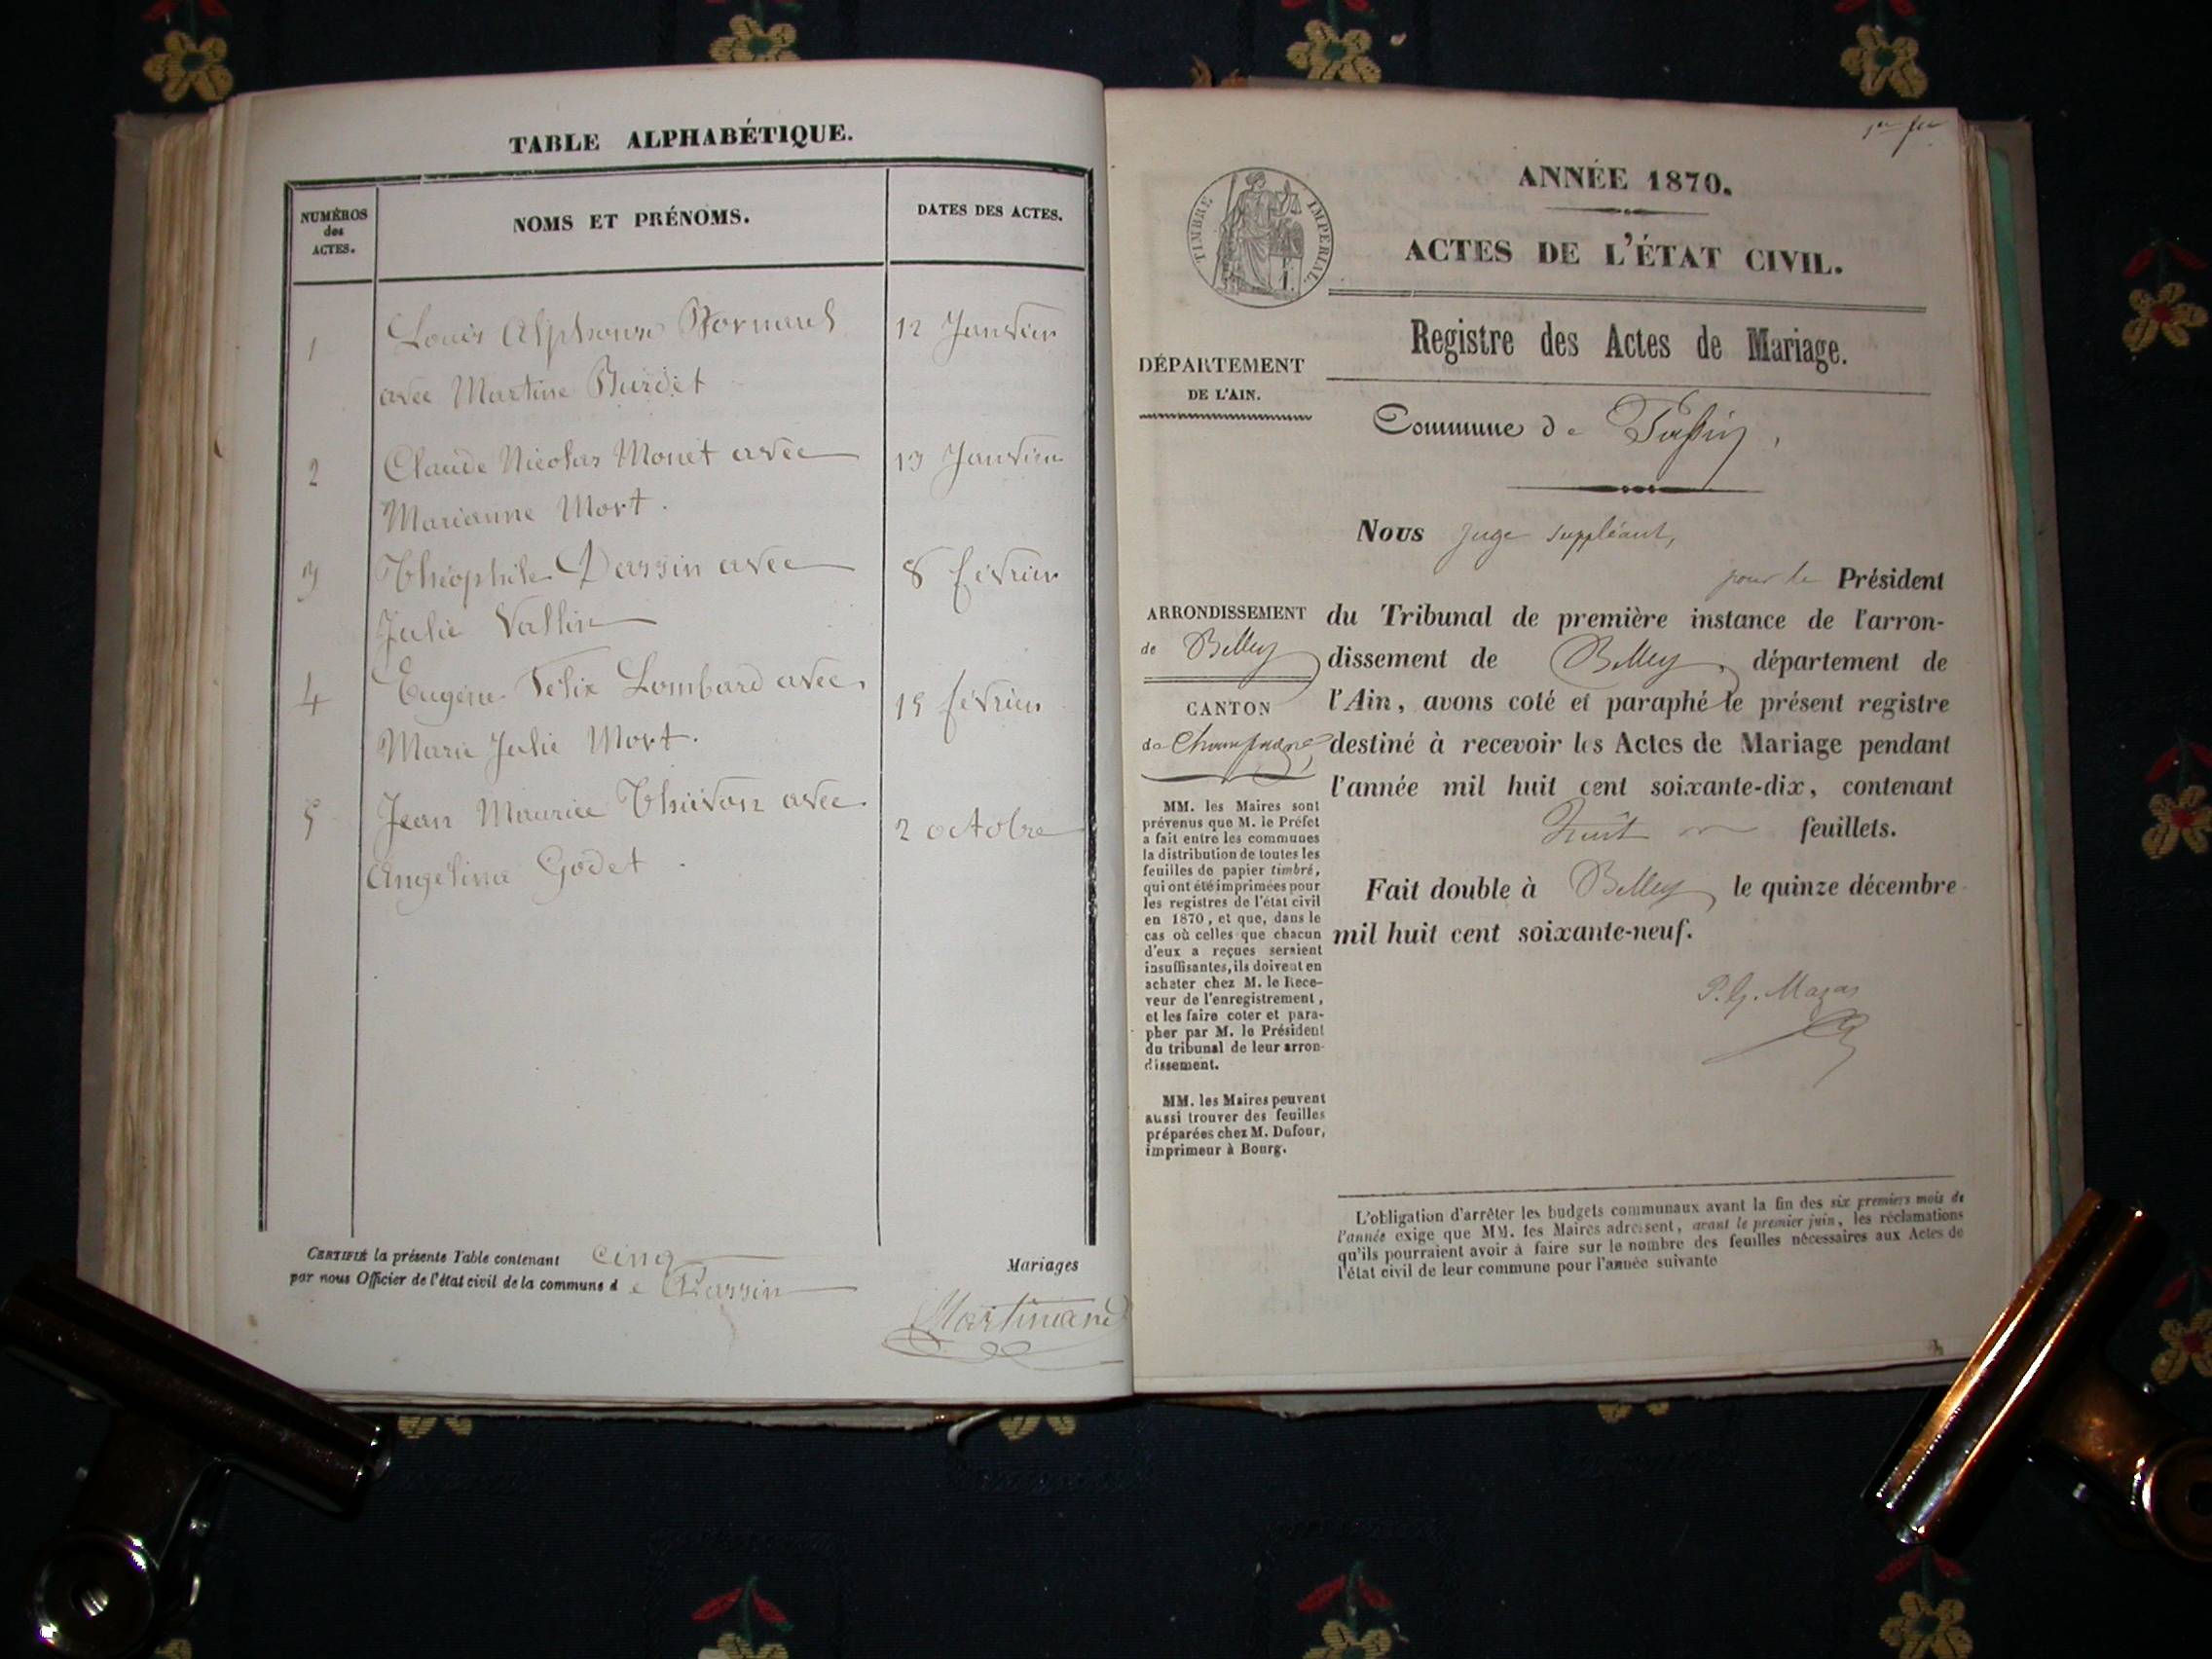 TABLE ALPHABÉTIQUE.
NUMÉROS
des
ACTES.
NOMS ET PRÉNOMS.
DATES DES ACTES.
1
Louis Alphonse
12 Janvier
avec Martine Burdet
2
Claude Nicolas Monet avec
13 Janvier
Marianne Mort.
3
Théophile Dassin avec
8 février
Julie Vallin
4
Eugène Felix Lombard avec
15 février
Marie Julie Mort.
5
Jean Maurice avec
2 octobre
Angelina Godet
CERTIFIÉ la présente Table contenant cinq Mariages
par nous Officier de l'état civil de la commune d e Passin
Martinand
ANNÉE 1870.
TIMBRE IMPERIAL.
ACTES DE L'ÉTAT CIVIL.
Registre des Actes de Mariage.
DÉPARTEMENT
DE L'AIN.
Commune de Passin,
Nous juge suppléant,
pour le Président
du Tribunal de première instance de l'arron-
dissement de Belley, département de
l'Ain, avons coté et paraphé le présent registre
destiné à recevoir les Actes de Mariage pendant
l'année mil huit cent soixante-dix, contenant
huit feuillets.
Fait double à Belley, le quinze décembre
mil huit cent soixante-neuf.
P. G. Mazas
ARRONDISSEMENT
de Belley
CANTON
de Champagne,
MM. les Maires sont
prévenus que M. le Préfet
a fait entre les communes
la distribution de toutes les
feuilles de papier timbré,
qui ont été imprimées pour
les registres de l'état civil
en 1870, et que, dans le
cas où celles que chacun
d'eux a reçues seraient
insuffisantes, ils doivent en
acheter chez M. le Rece-
veur de l'enregistrement,
et les faire coter et para-
pher par M. le Président
du tribunal de leur arron-
dissement.
MM. les Maires peuvent
aussi trouver des feuilles
préparées chez M. Dufour,
imprimeur à Bourg.
L'obligation d'arrêter les budgets communaux avant la fin des six premiers mois de
l'année exige que MM. les Maires adressent, avant le premier juin, les réclamations
qu'ils pourraient avoir à faire sur le nombre des feuilles nécessaires aux Actes de
l'état civil de leur commune pour l'année suivante